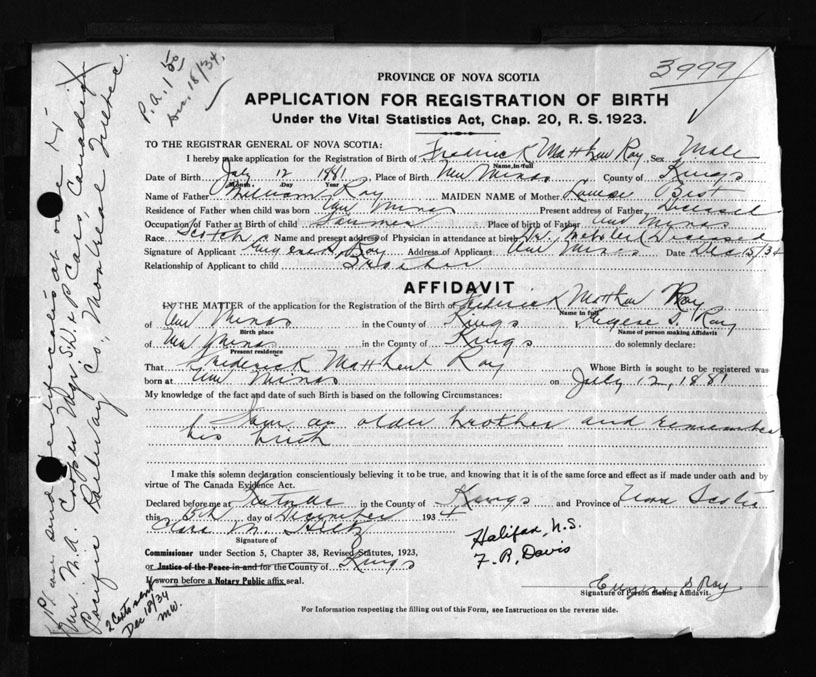 3999
P.A. 150
Dec. 18/34.
PROVINCE OF NOVA SCOTIA
APPLICATION FOR REGISTRATION OF BIRTH
Under the Vital Statistics Act, Chap. 20, R. S. 1923.
TO THE REGISTRAR GENERAL OF NOVA SCOTIA:
I hereby make application for the Registration of Birth of Frederick Matthew Roy Sex Male
Name in full
Date of Birth July 12 1881 Place of Birth New Minas County of Kings
Month Day Year
Name of Father William Roy MAIDEN NAME of Mother Louise Best
Residence of Father when child was born New Minas Present address of Father Deceased
Occupation of Father at Birth of child Farmer Place of birth of Father New Minas
Race Scotch Name and present address of Physician in attendance at birth Dr. Webster Deceased
Signature of Applicant Eugene S. Roy Address of Applicant New Minas Date Dec 5/34
Relationship of Applicant to child Brother
AFFIDAVIT
IN THE MATTER of the application for the Registration of the Birth of Frederick Matthew Roy
Name in full
of New Minas in the County of Kings Eugene S Roy
Birth place Name of person making Affidavit
of New Minas in the County of Kings do solemnly declare:
Present residence
That Frederick Matthew Roy Whose Birth is sought to be registered was
born at New Minas on July 12, 1881
My knowledge of the fact and date of such Birth is based on the following Circumstances:
I am an older brother and remember
his birth
I make this solemn declaration conscientiously believing it to be true, and knowing that it is of the same force and effect as if made under oath and by
virtue of The Canada Evidence Act.
Declared before me at Kentville in the County of Kings and Province of Nova Scotia
this 5th day of December 1934
M.
Signature of
Halifax, N.S.
F. R. Davis
Commissioner under Section 5, Chapter 38, Revised Statutes, 1923,
or Justice of the Peace in and for the County of Kings
If sworn before a Notary Public affix seal.
Eugene S Roy
Signature of Person making Affidavit.
For Information respecting the filling out of this Form, see Instructions on the reverse side.
Please send certificate at once to
Mr. N.A. Cooper Mgr. S.D. & P Cars, Canadian
Pacific Railway Co., Montreal Quebec
2 Certs sent
Dec 18/34
MW.